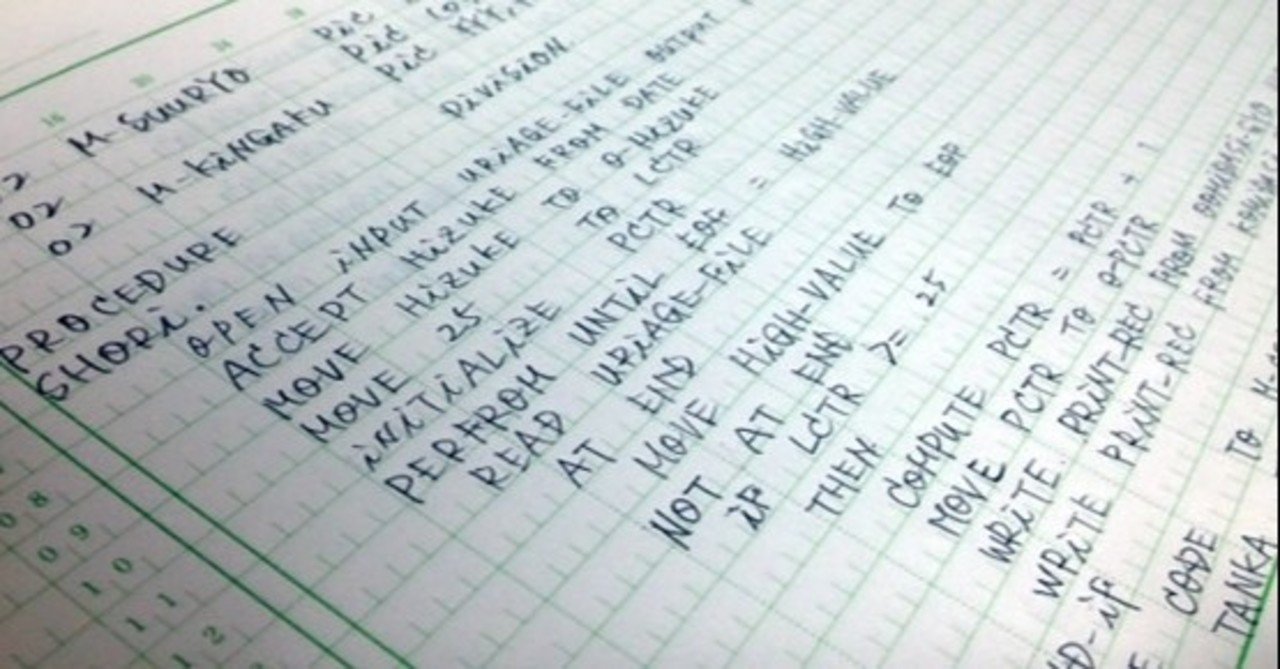 02 M-SUURYO PIC
02 M-KINGAKU PIC
PROCEDURE DIVISION
SHORI.
OPEN INPUT URIAGE-FILE OUTPUT
ACCEPT HIZUKE FROM DATE
MOVE HIZUKE TO O-HIZUKE
MOVE 25 TO LCTR
INITIALIZE PCTR
PERFROM UNTIL EOF = HIGH-VALUE
READ URIAGE-FILE
AT END
MOVE HIGH-VALUE TO EOF
NOT AT END
IF LCTR >= 25
THEN
COMPUTE PCTR = PCTR + 1
MOVE PCTR TO O-PCTR
WRITE PRINT-REC FROM
WRITE PRINT-REC FROM
D-IF
CODE TO
TANKA
08
09
10
11
12